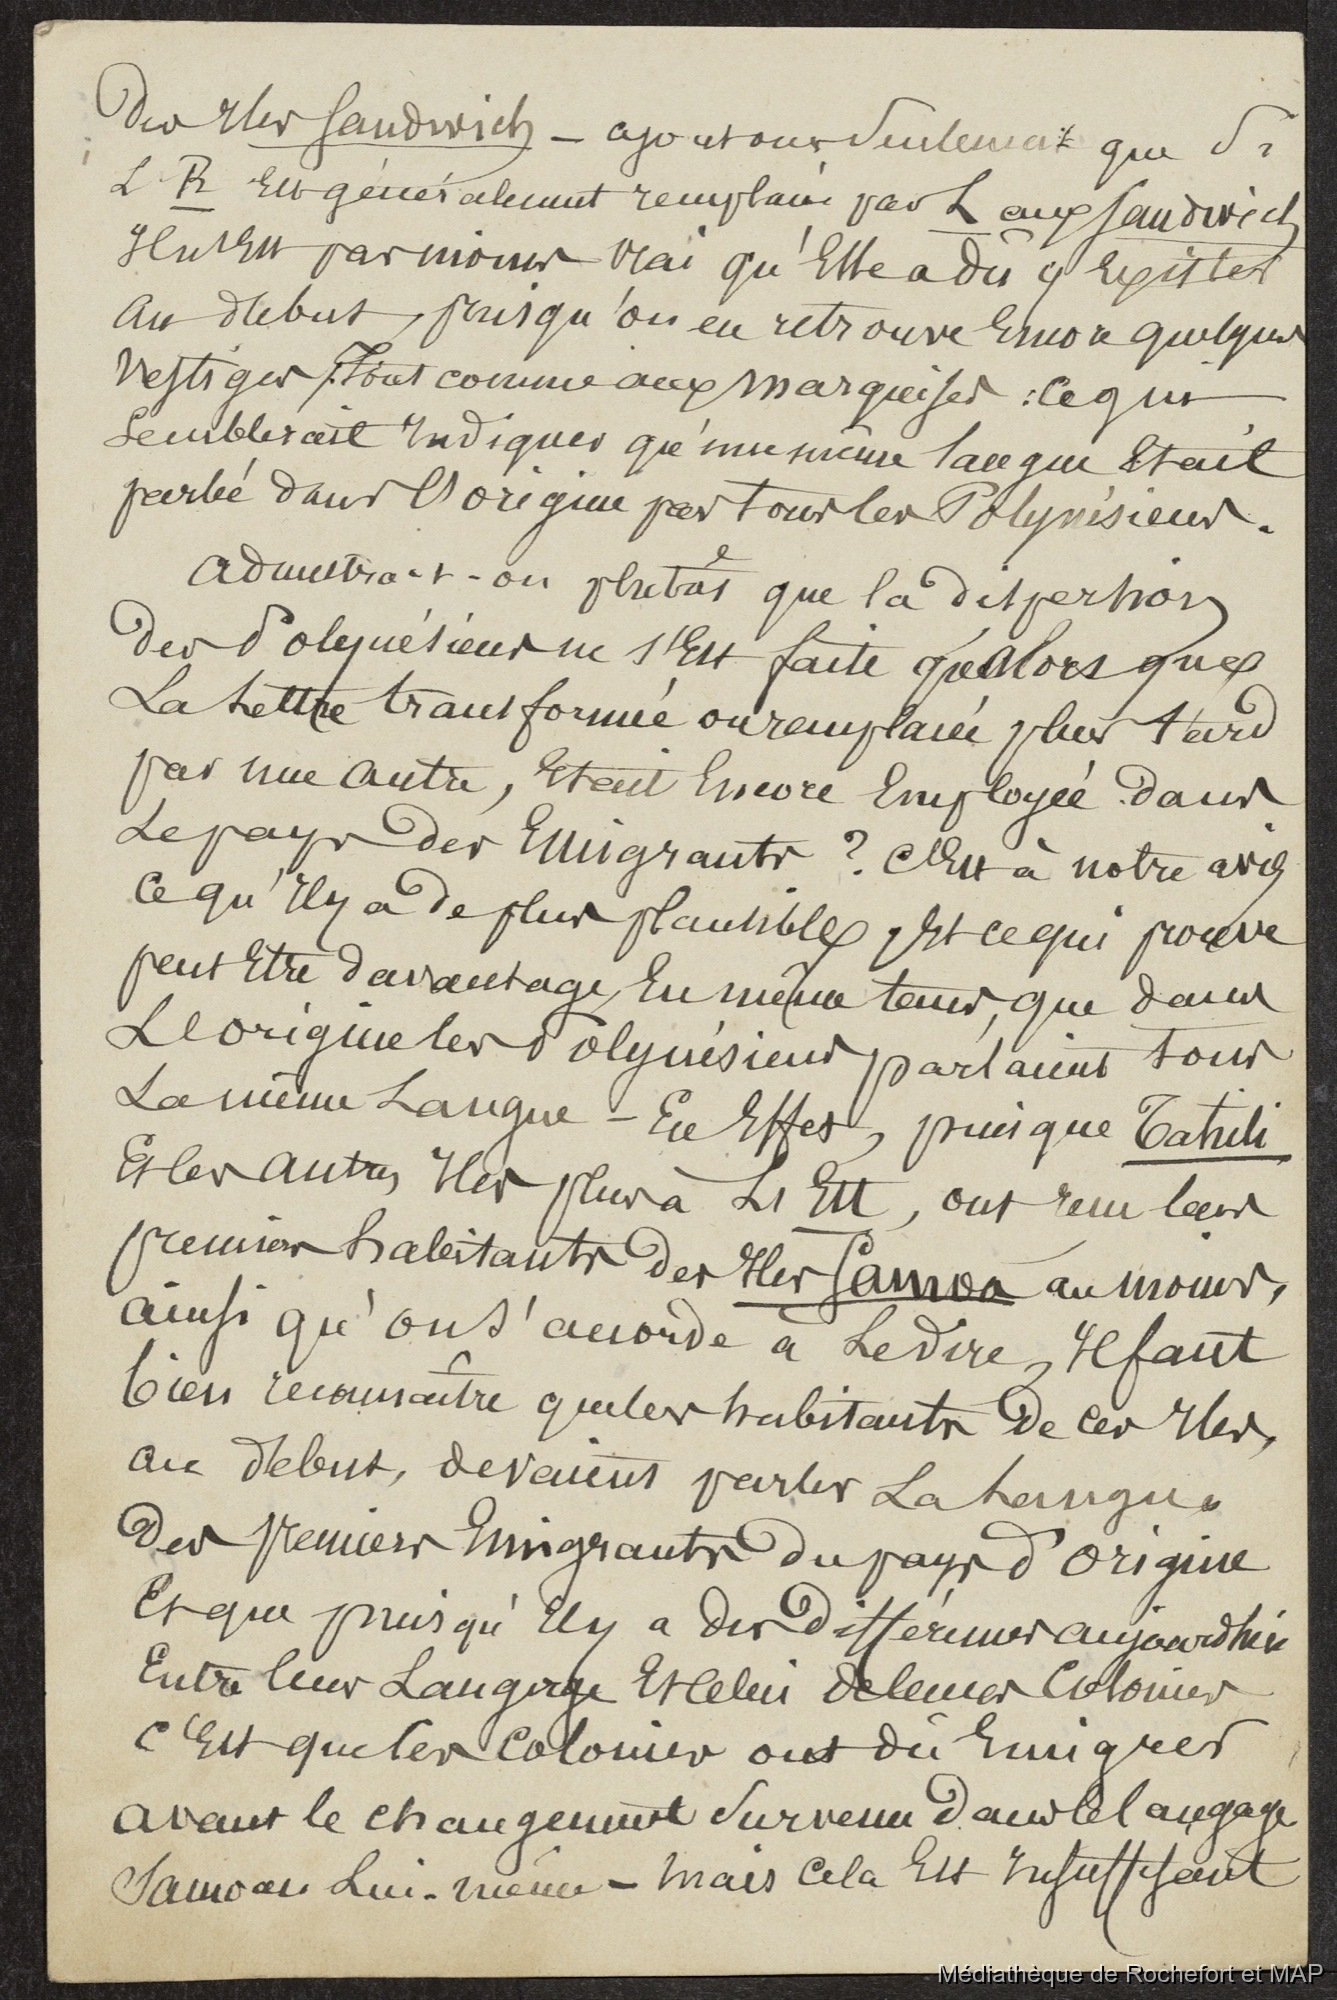 Des Iles Sandwich – ajoutons seulement que si
L R est généralement remplacé par L aux Sandwich
Il n'est pas moins vrai qu'Elle a dû y Exister
au début, puisqu'on en retrouve Encore quelques
Vestiges, Tout comme aux Marquises : ce qui
Semblerait Indiquer qu'une même langue Etait
parlé dans l'origine par tous les Polynésiens.
admettra-t-on plutôt que la dispersion
Des Polynésiens ne s'Est faite qu'alors que
La Lettre transformée ou remplacée plus tard
par une autre, Etait Encore Employée dans
Le pays des Emigrants ? C'Est à notre avis
Ce qu'Il y a De plus plausible, Et ce qui prouve
peut Etre davantage, En même tems, que dans
L'origine les Polynésiens parlaient tous
La même Langue – En Effet, puisque Tahiti
Et les autres Iles plus à L'Est, ont reçu leurs
premiers habitants des Iles Samoa au moins,
ainsi qu'on s'accorde à Le dire, Il faut
bien reconnaître que les habitants De ces Iles,
au début, devaient parler La Langue
Des premiers Emigrants du pays d'origine
Et que puisqu'Il y a des Différences aujourd'hui
Entre leur Langage Et celui de leurs Colonies
C'Est que les Colonies ont dû Emigrer
avant le changement survenu dans le langage
Samoan Lui-même – Mais cela Est Insuffisant
Médiathèque de Rochefort et MAP